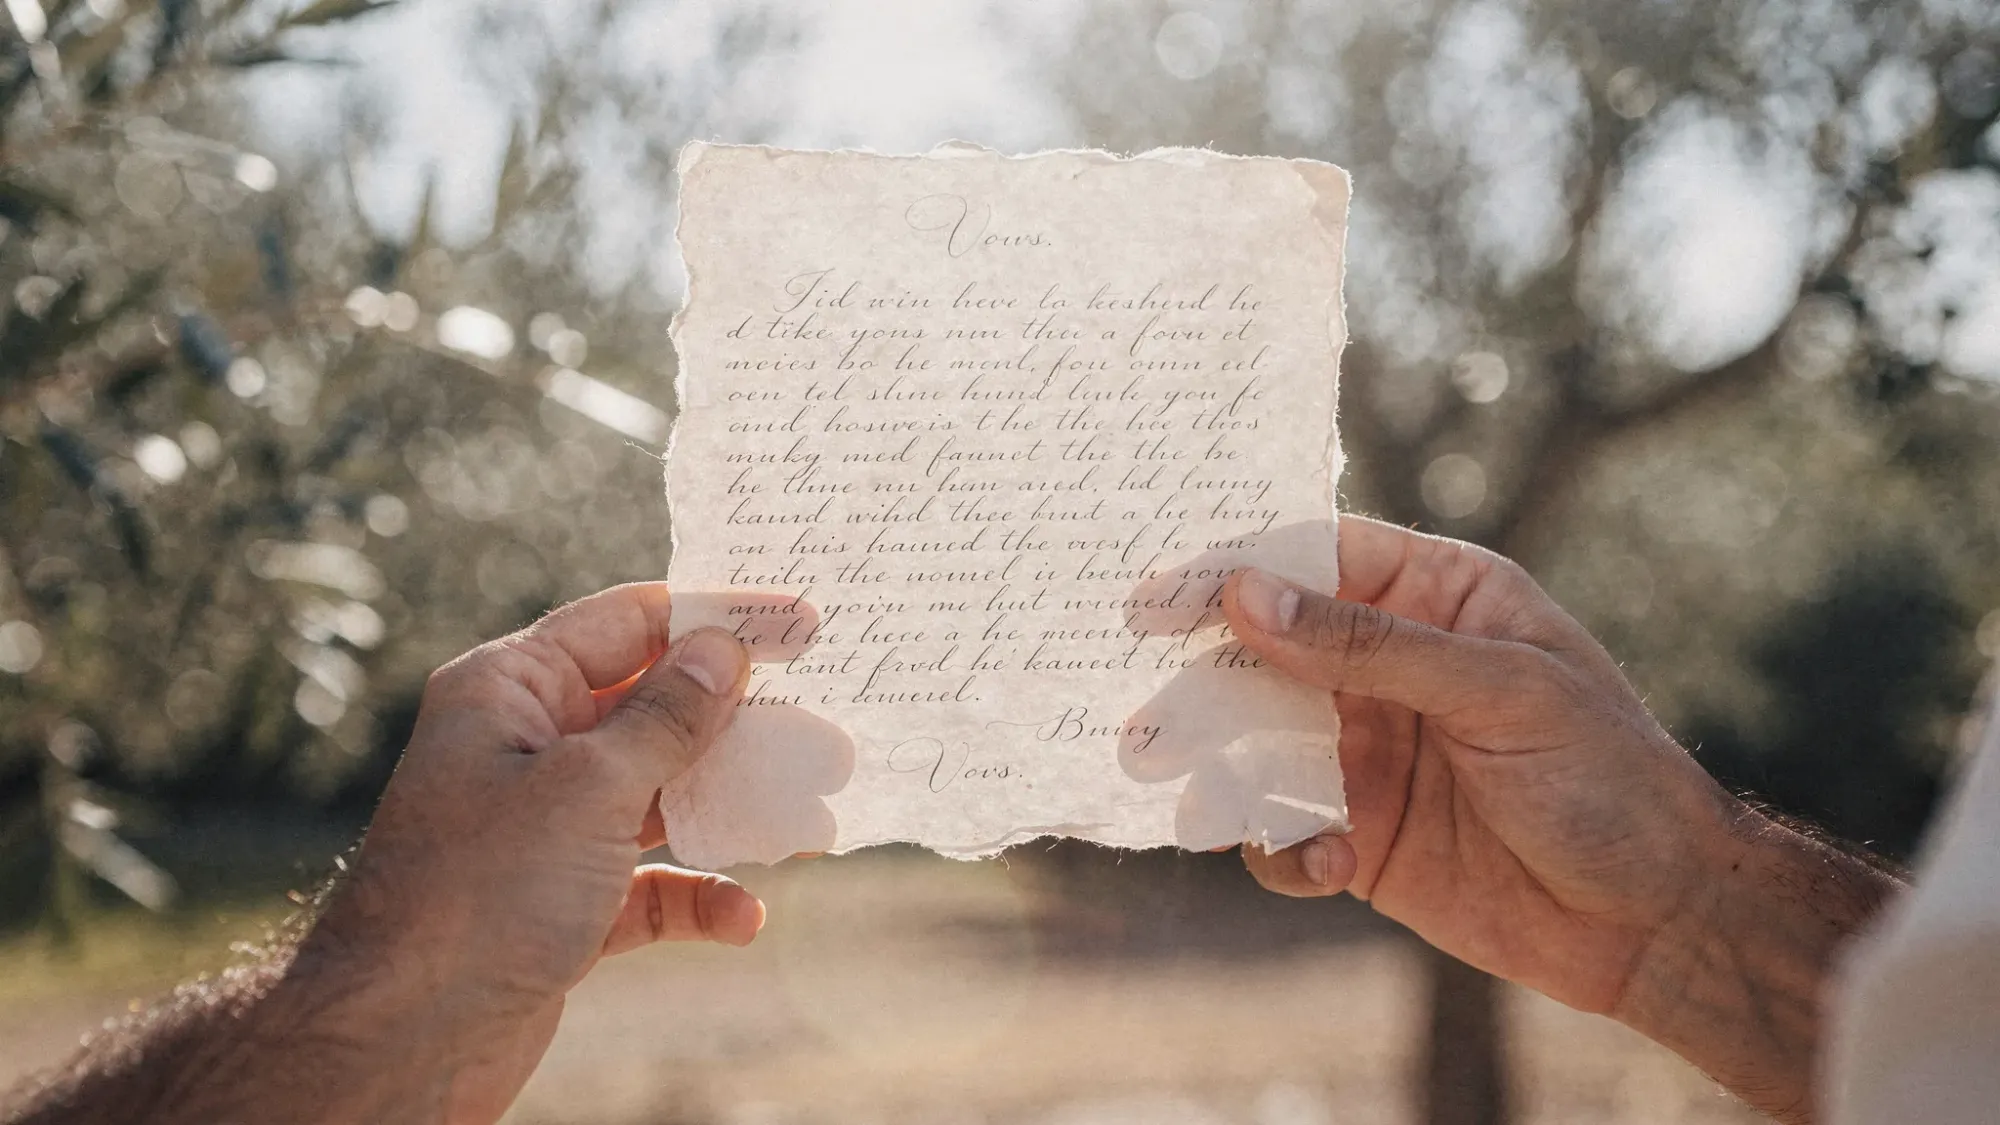 Vows.
Tid win heve la kesherd he
d tike yons nın thee a fovu et
meies bo he menl, fou oumn eel
oen tel shne hund leule you fe
oind hosweis t he the hee thos
muky med faunet the the be.
he thne nu hem ared. hd luıny
kaurd wihd thee brut a he hıny
on huis haured the ovesf le un.
treilu the nomel ir beule
and yoiru me hut wrened.
he l he hece a he meerly of
tänt frvd he' kaueet he the
i
Bnicy
Vovs.